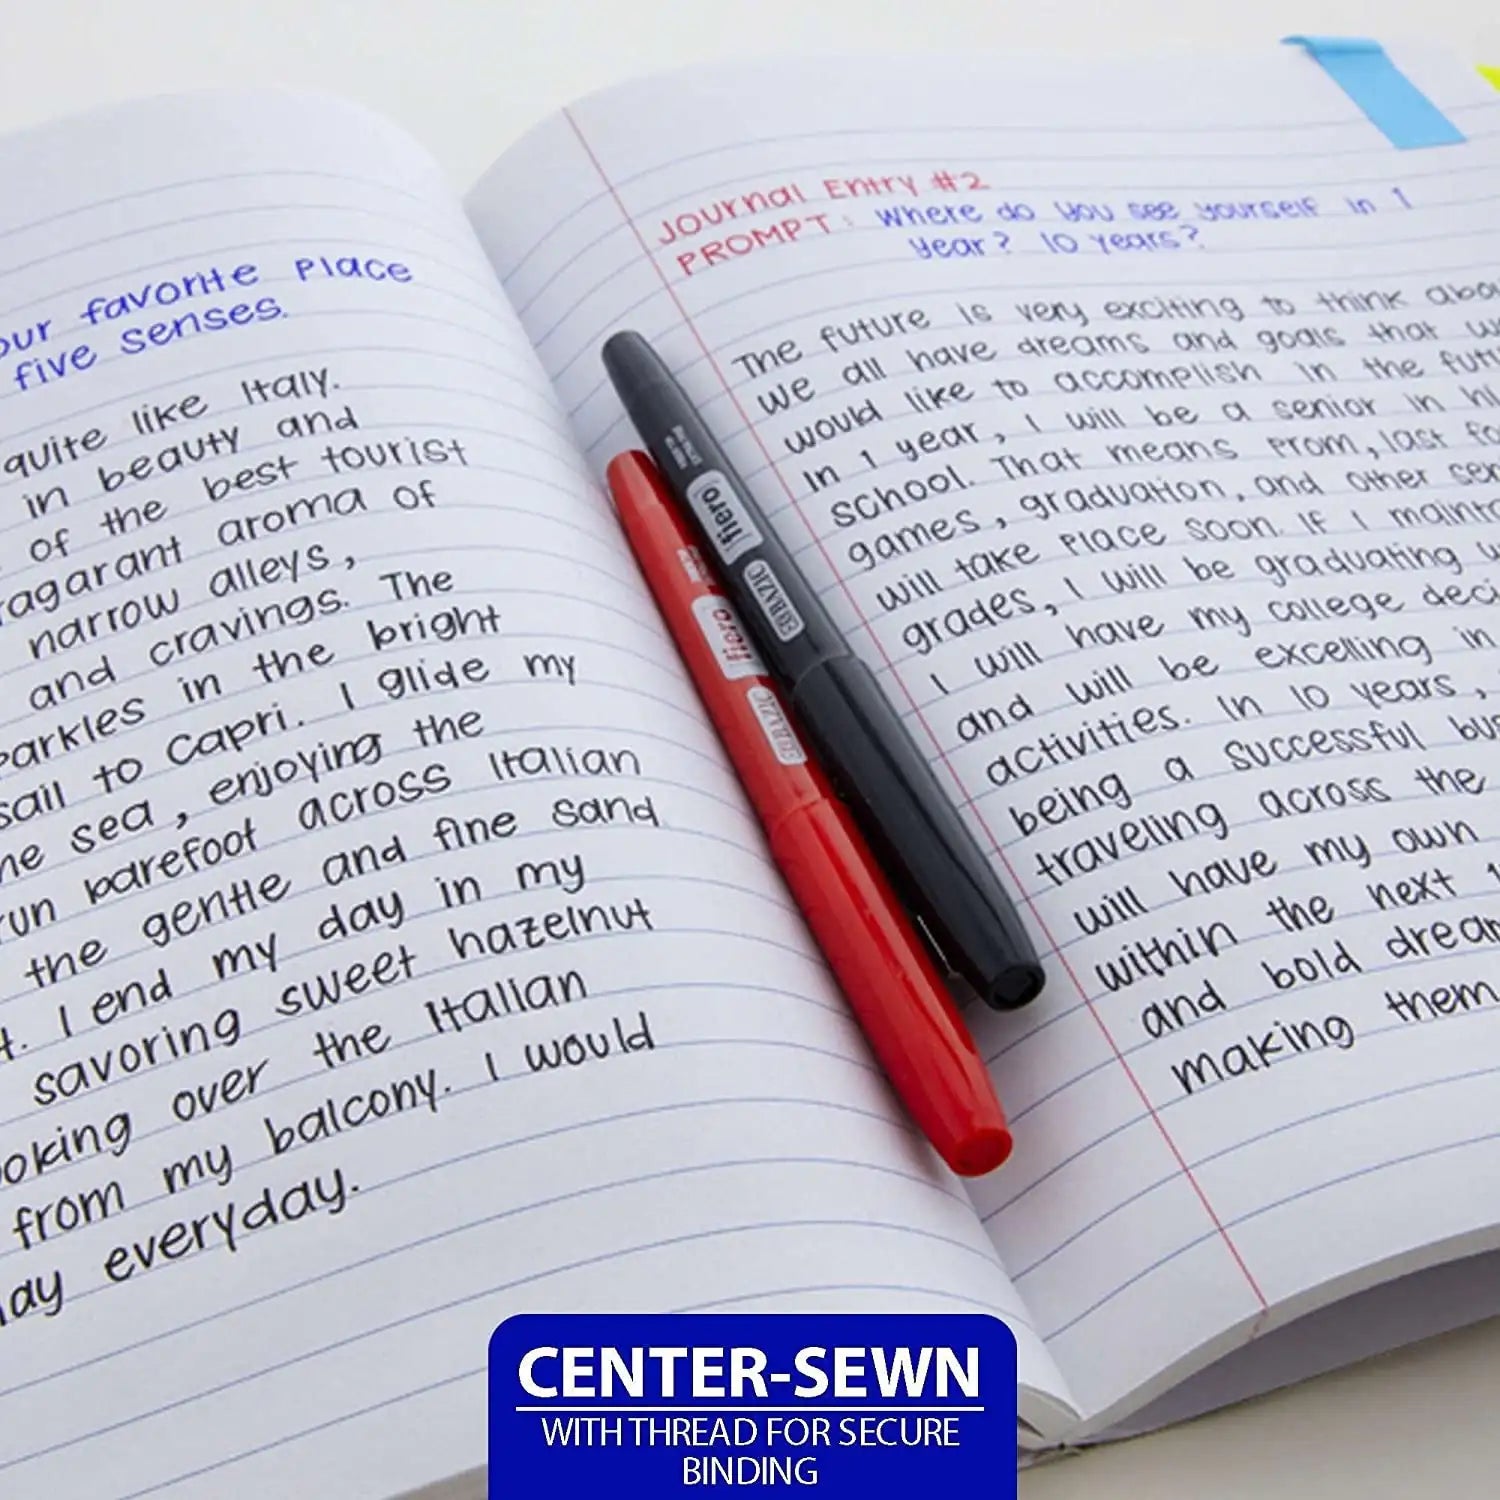 our favorite Place
five senses.
quite like Italy.
in beauty and
of the best tourist
ragarant aroma of
narrow alleys,
and cravings. The
parkles in the bright
sail to Capri. I glide my
he sea, enjoying the
run barefoot across Italian
the gentle and fine sand
t. I end my day in my
savoring sweet hazelnut
ooking over the Italian
from my balcony. I would
ay everyday.
Journal Entry #2
PROMPT: Where do you see yourself in 1
year? 10 years?
The future is very exciting to think abo
we all have dreams and goals that w
would like to accomplish in the futu
In 1 year, I will be a senior in hi
school. That means Prom, last fo
games, graduation, and other sen
will take place soon. If I mainta
grades, I will be graduating w
I will have my college deci
and will be excelling in
activities. In 10 years,
being a successful bus
traveling across the
will have my own
within the next 1
and bold drea
making them
fiero
EUBAZIC
fiero
EUBAZIC
CENTER-SEWN
WITH THREAD FOR SECURE
BINDING